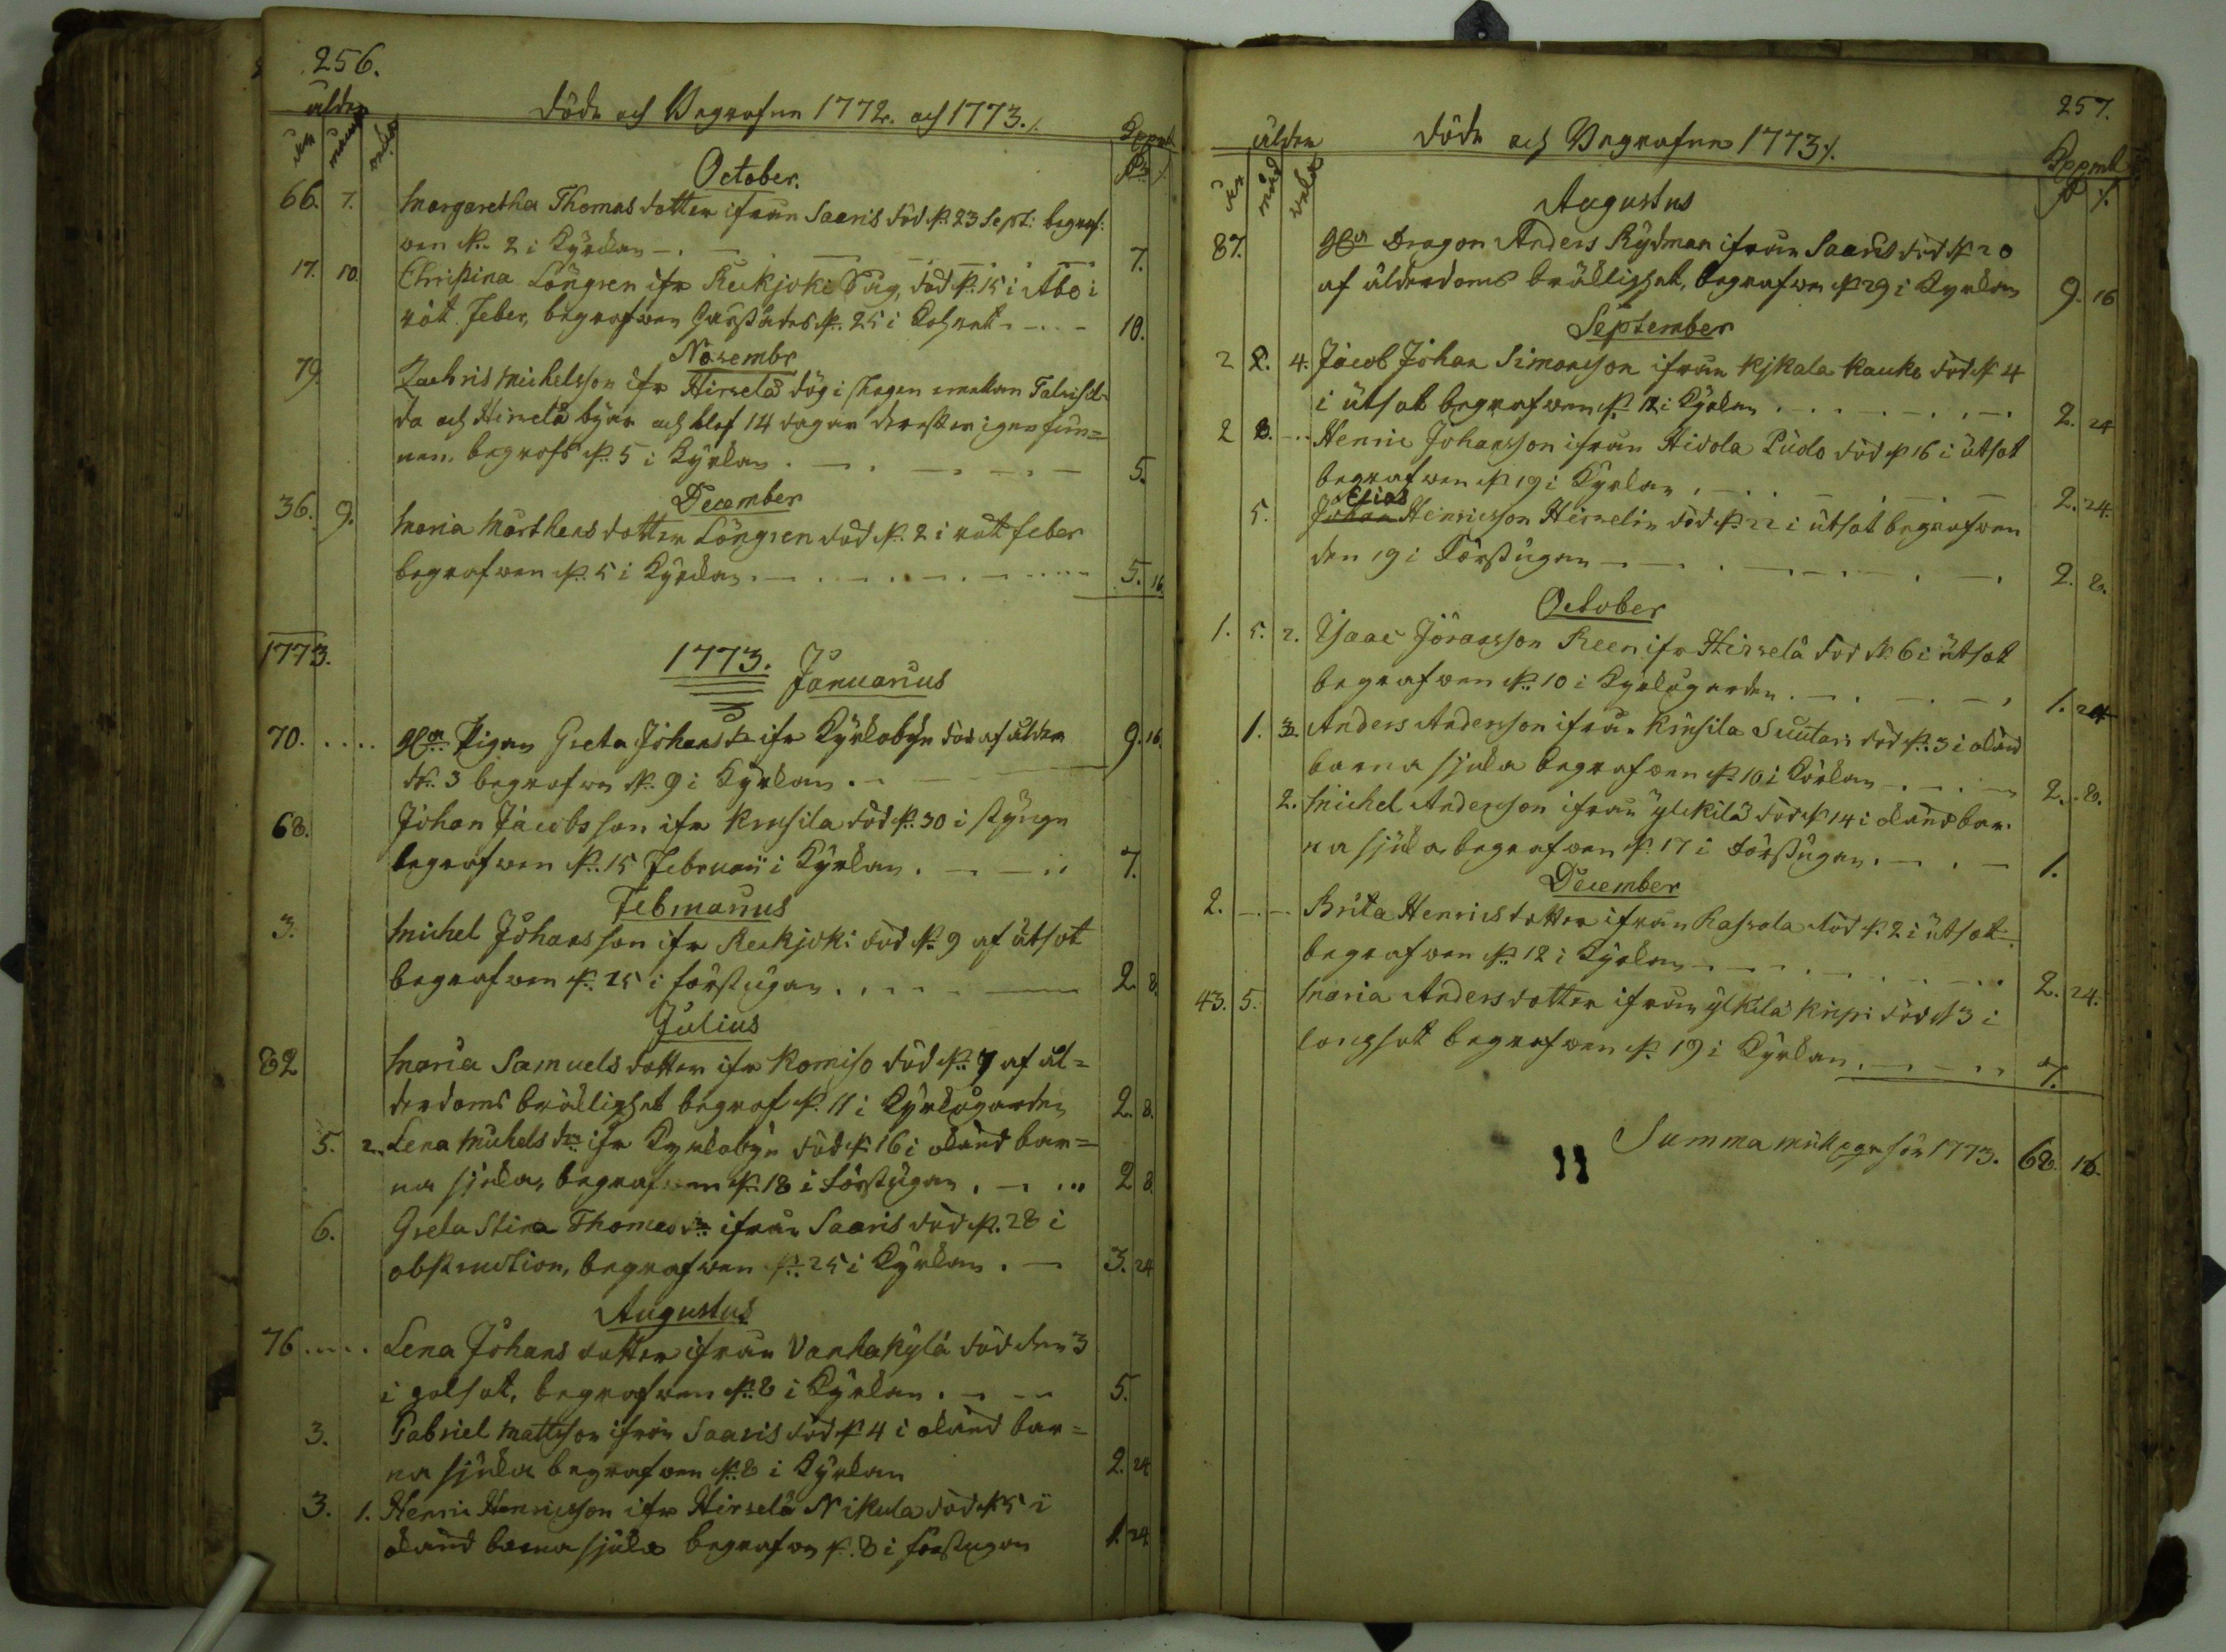 256.
ålder
Döde och Begrafne 1772. och 1773.
Kppmt
åhr månad veckor
October.
66. 7. Margaretha Thomas dotter ifrån Saaris död d. 23 Sept: begraf:
wen d. 2 i Kyrkan 7.
17. 10. Christina Löngren ifr Reckjoki Säg, död d. 15 i Åbo i
röt feber, begrafwen d. 25 i Choret 10.
Novembr
79. Zachris Michelsson ifr Hirvelä dög i skogen emellan
da och Hirvelä byar och blef 14 dagar derefter igenfun=
nen, begrofs d. 5 i Kyrkan 5.
December
36. 9. Maria Marthens dotter Löngren död d. 2 i röt feber
begrafwen d. 5 i Kyrkan 5. 16.
1773.
1773. Januarius
70. Pigan Greta Johans dr ifr Kyrkobyn död af ålder 9. 16.
d. 3 begrafwen d. 9 i Kyrkan
68. Johan Jacobsson ifr Krusila död d. 30 i styng
begrafwen d. 15 Februarii i Kyrkan 7.
Februarius
3. Michel Johansson ifr Reckjoki död d. 9 af utsot
begrafwen d. 25 i förstugan 2. 8.
Julius
82 Maria Samuels dotter ifr Komiso död d. 7 af ål=
derdoms bräklighet begraf d. 11 i Kyrkogården 2. 8.
5. 2. Lena Michels dr ifr Kyrkobyn död d. 16 i okänd bar=
na sjuka, begrafwen d. 18 i förstugan 2 8.
6. Greta Stina Thomas dr ifrån Saaris död d. 28 i
obstruction, begrafwen d. 25 i Kyrkan 3. 24
Augustus
76 Lena Johans dotter ifrån Vanhakylä död den 3
i golsot, begrafwen d. 8 i Kyrkan 5.
3. Gabriel Mattsson ifrån Saaris död d. 4 i okänd bar=
na sjuka begrafwen d. 8 i Kyrkan 2. 24
3. 1. Henric Henricsson ifr Hirvelä Nikula död d. 5 i
okänd barnasjuka begrafwen d. 8 i förstugan 1. 24
257.
ålder
Döde och Begrafne 1773.
Kppmt
åhr månad veckor
Augustus
87. Dragon Anders Rydman ifrån Saaris död d. 20
af ålderdoms bräklighet, begrafwen d. 29 i Kyrkan 9. 16
September
2 8. 4. Jacob Johan Simonsson ifrån Kjkala Kauko död d. 4
i utsot begrafwen d. 12 i Kyrkan 2. 24
2 8. Henric Johansson ifrån Hidola Pudo död d. 16 i utsot
begrafwen d. 19 i Kyrkan 2. 24.
Elias
5. Johan Henricsson Hirvelin död d. 22 i utsot begrafwen
den 19 i Förstugan 2. 8.
October
1. 5. 2. Isaac Göransson Reen ifr Hirvelä död d. 6 i utsot
begrafwen d. 10 i Kyrkogården 1. 24
1. 3. Anders Andersson ifrån Krusila Suutari död d. 3 i okänd
barna sjuka begrafwen d. 10 i Kyrkan 2. 8.
2. Michel Andersson ifrån Ylikilä död d. 14 i okänd bar
na sjuka begrafwen d. 17 i förstugan 1.
December
2. Brita Henrics dotter ifrån Rassala död d. 2 i utsot
begrafwen d. 12 i Kyrkan 2. 24.
43. 5. Maria Anders dotter ifrån Ylkilä Knipi död d. 3 i
longsot begrafwen d. 19 i Kyrkan 7.
Summa för 1773. 68. 16.